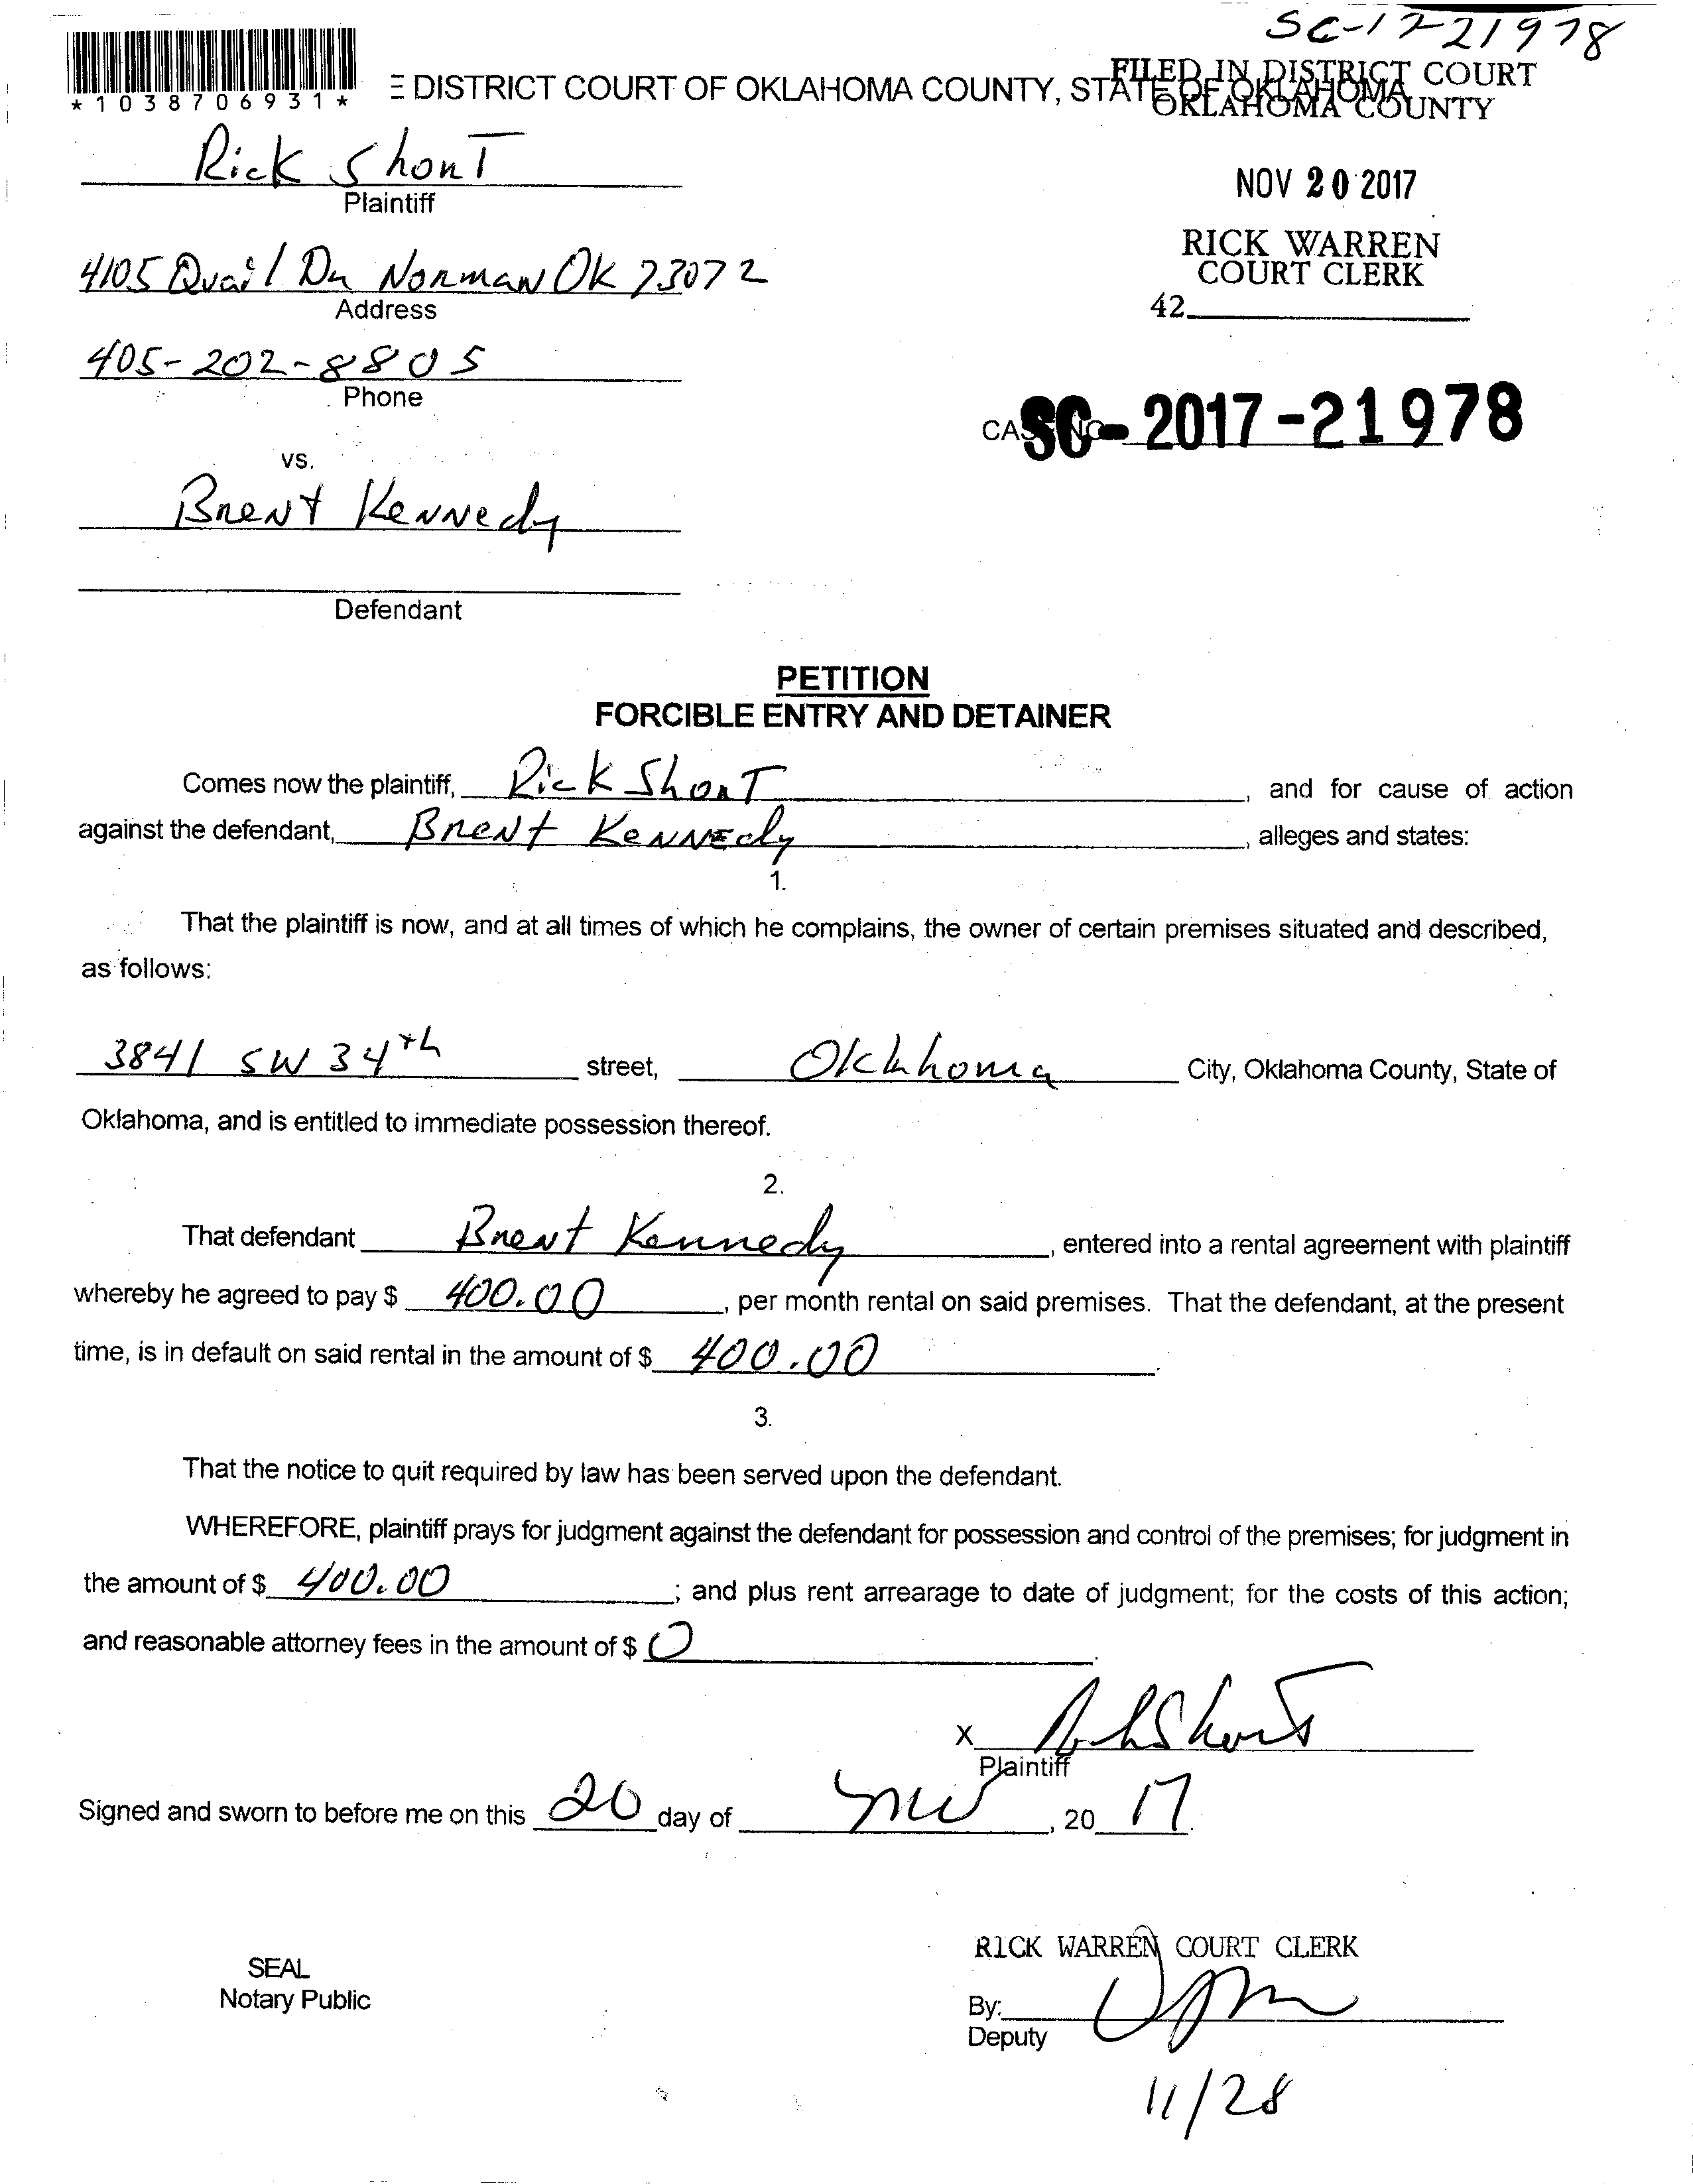 SC-17-21978
*1038706931*
E DISTRICT COURT OF OKLAHOMA COUNTY, STATE OF OKLAHOMA
FILED IN DISTRICT COURT
OKLAHOMA COUNTY
Rick Short
Plaintiff
NOV 20 2017
RICK WARREN
COURT CLERK
42
4105 Quail Dr Norman OK 73072
Address
405-202-8805
Phone
SC - 2017 - 21978
vs.
Brent Kennedy
Defendant
PETITION
FORCIBLE ENTRY AND DETAINER
Comes now the plaintiff, Rick Short, and for cause of action
against the defendant, Brent Kennedy, alleges and states:
1.
That the plaintiff is now, and at all times of which he complains, the owner of certain premises situated and described,
as follows:
3841 SW 34th street, Oklahoma City, Oklahoma County, State of
Oklahoma, and is entitled to immediate possession thereof.
2.
That defendant Brent Kennedy, entered into a rental agreement with plaintiff
whereby he agreed to pay $ 400.00, per month rental on said premises. That the defendant, at the present
time, is in default on said rental in the amount of $ 400.00.
3.
That the notice to quit required by law has been served upon the defendant.
WHEREFORE, plaintiff prays for judgment against the defendant for possession and control of the premises; for judgment in
the amount of $ 400.00; and plus rent arrearage to date of judgment; for the costs of this action;
and reasonable attorney fees in the amount of $ 0.
X
Plaintiff
Signed and sworn to before me on this 20 day of Nov, 20 17.
RICK WARREN COURT CLERK
SEAL
Notary Public
By:
Deputy
11/28